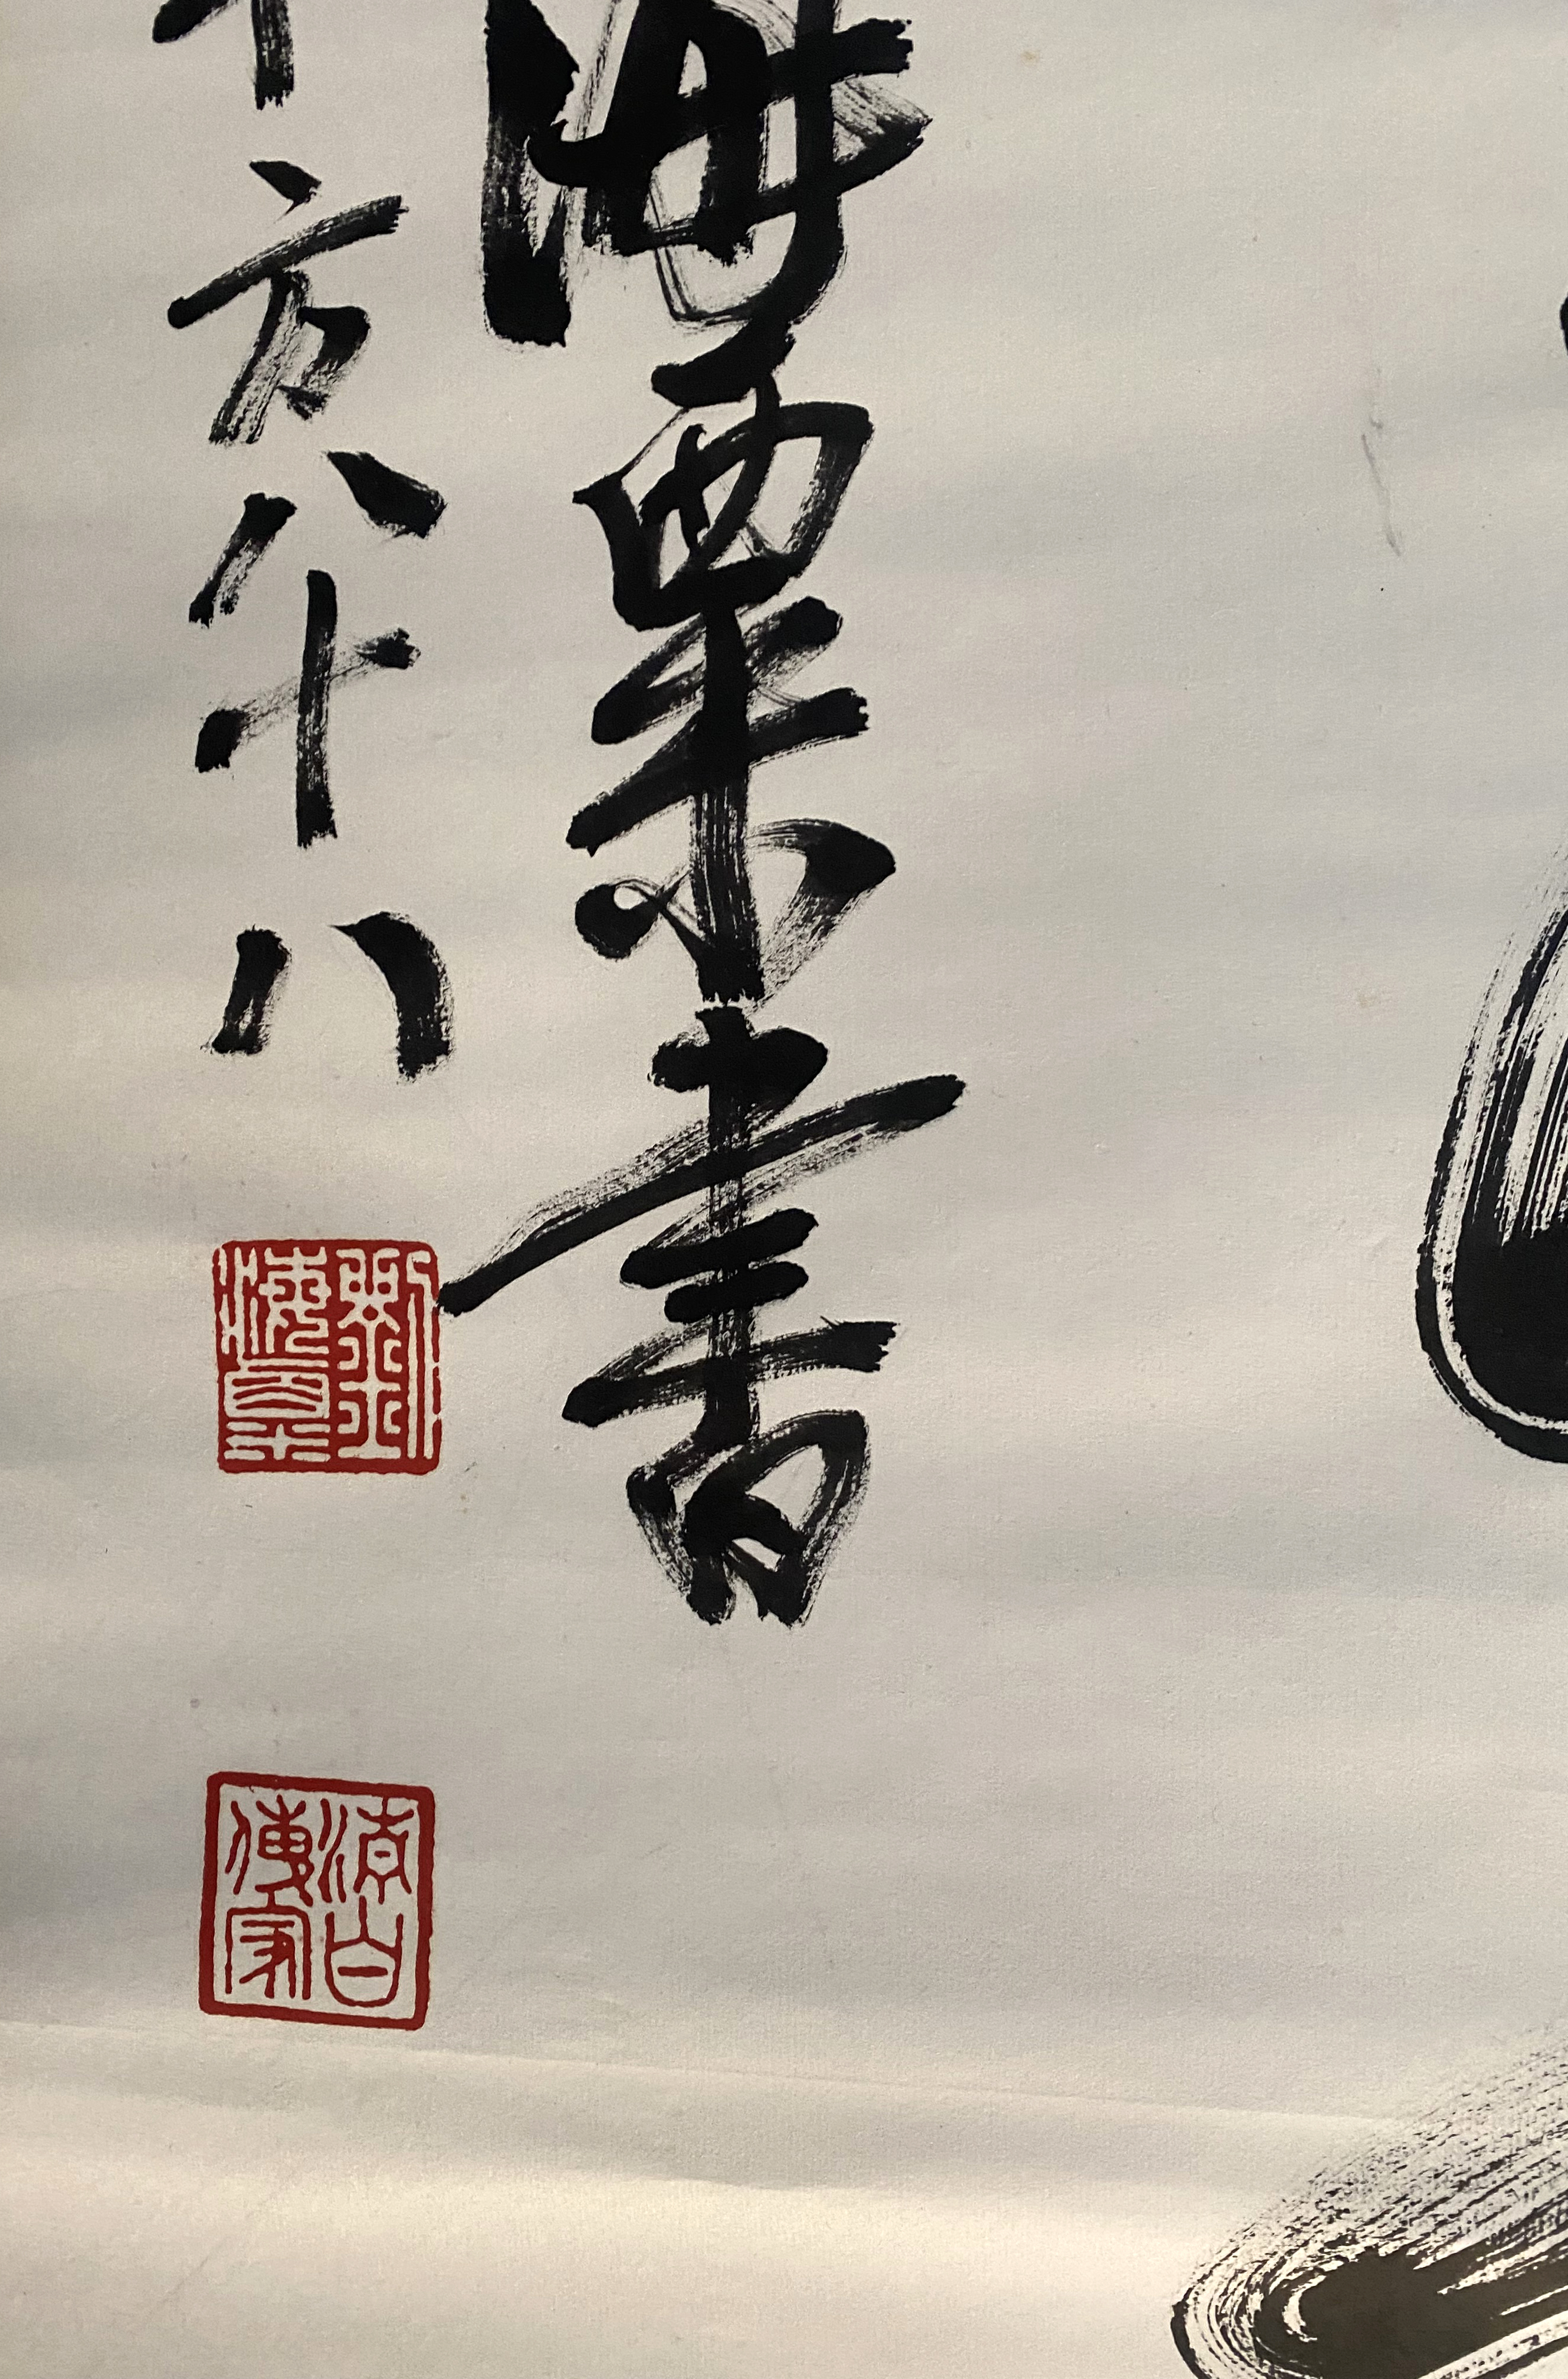 海粟書
年方八十八
劉海粟
清白傳家